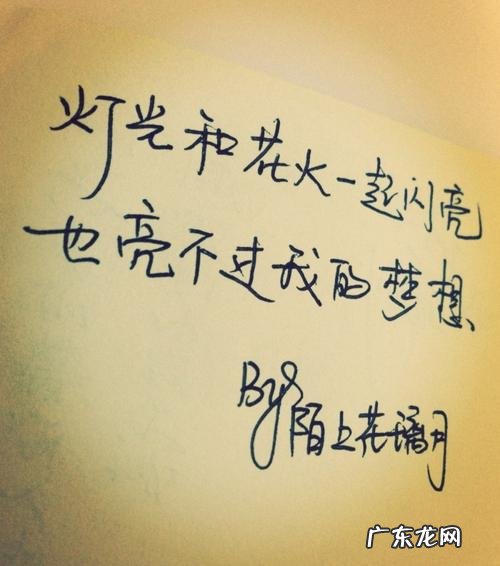 灯光和花火一起闪亮
也亮不过我的梦想
By 陌上花璃月
广东龙网